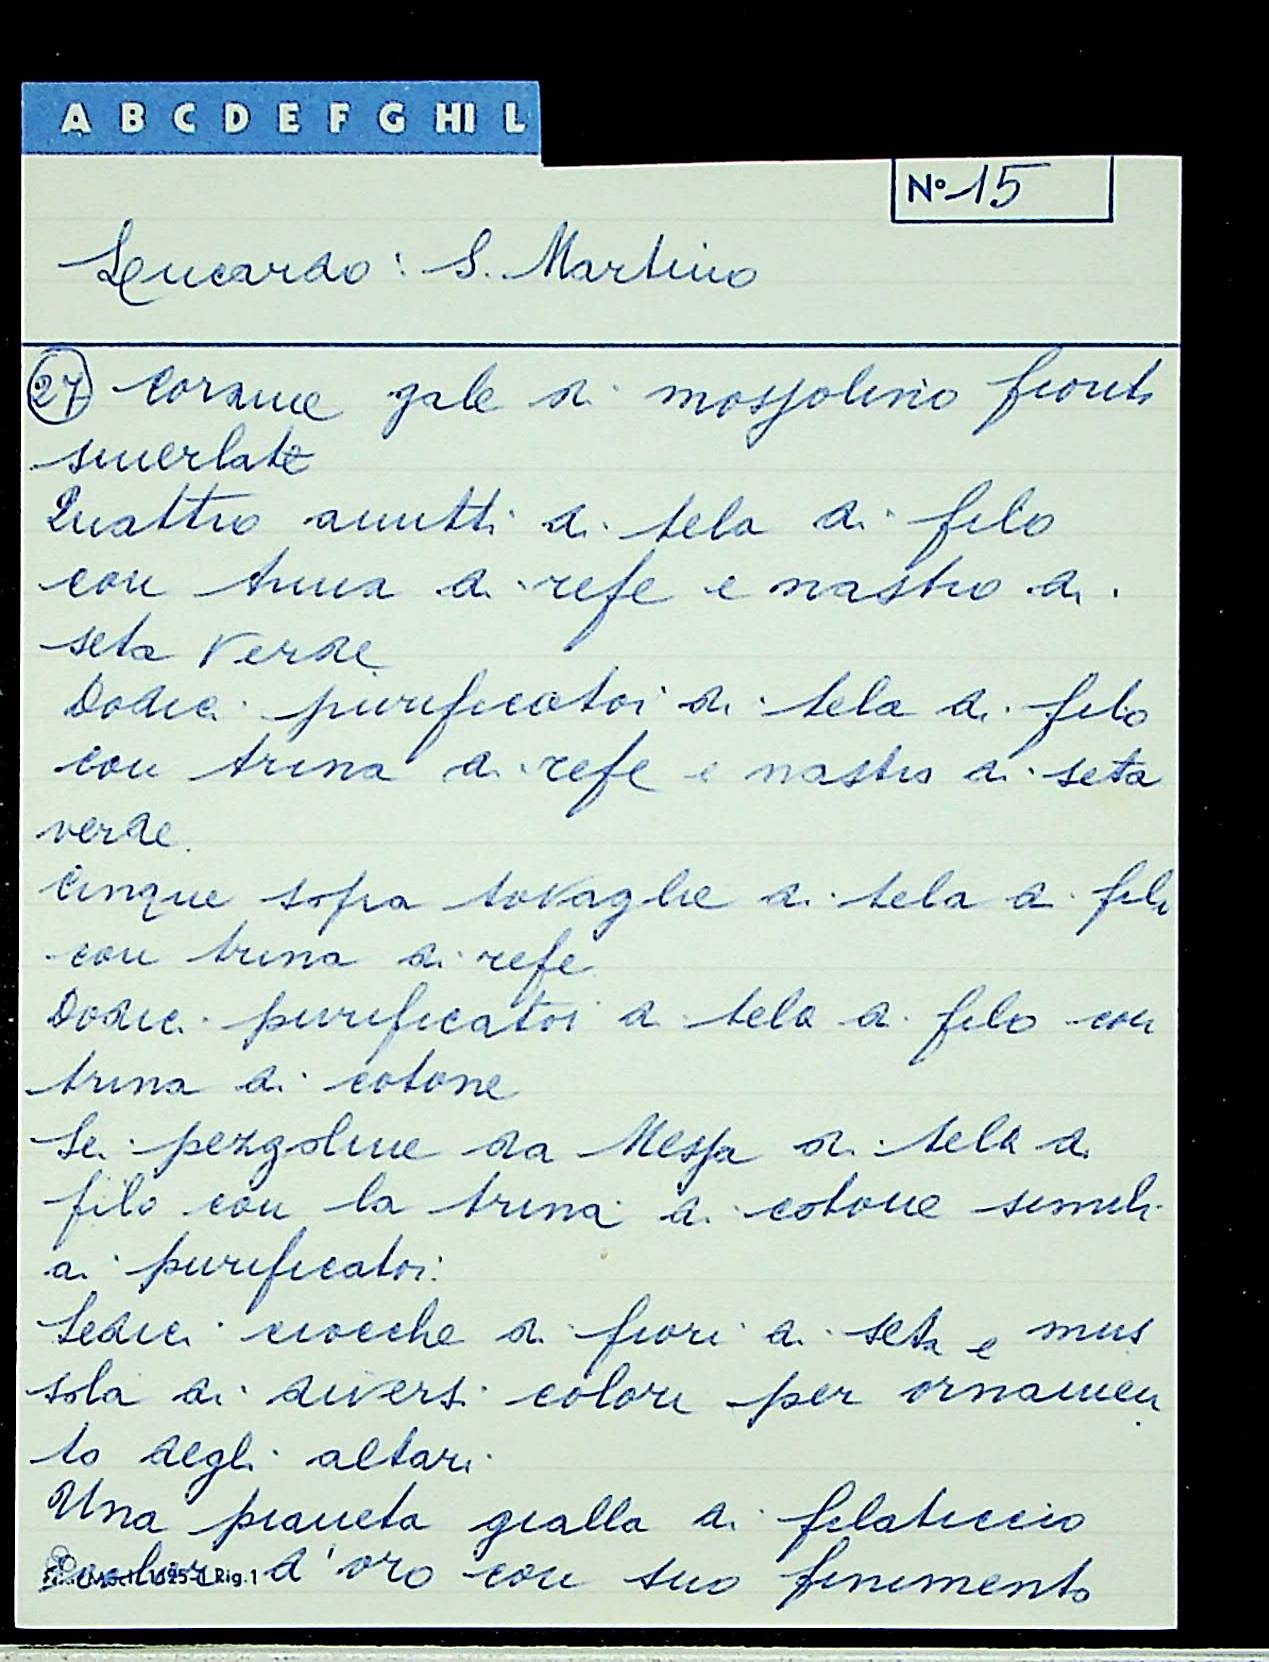 A B C D E F G HI L
Nº 15
Leucardo: S. Martino
27 Cordue gale di mossolino fiorito
smerlate
Quattro amitti di tela di filo
con trina di refe e nastro di
seta verde
Dodici purificatoi di tela di filo
con trina di refe e nastro di seta
verde.
Cinque sopra tovaglie di tela di filo
con trina di refe
Dodici purificatoi di tela di filo con
trina di cotone
Sei pezzoline da Messa di tela di
filo con la trina di cotone simili
ai purificatoi.
Sedici ciocche di fiori di seta e mus
sola di diversi colori per ornamen
to degli altari
Una pianeta gialla di filaticcio
d'oro con suo finimento
Rig.1